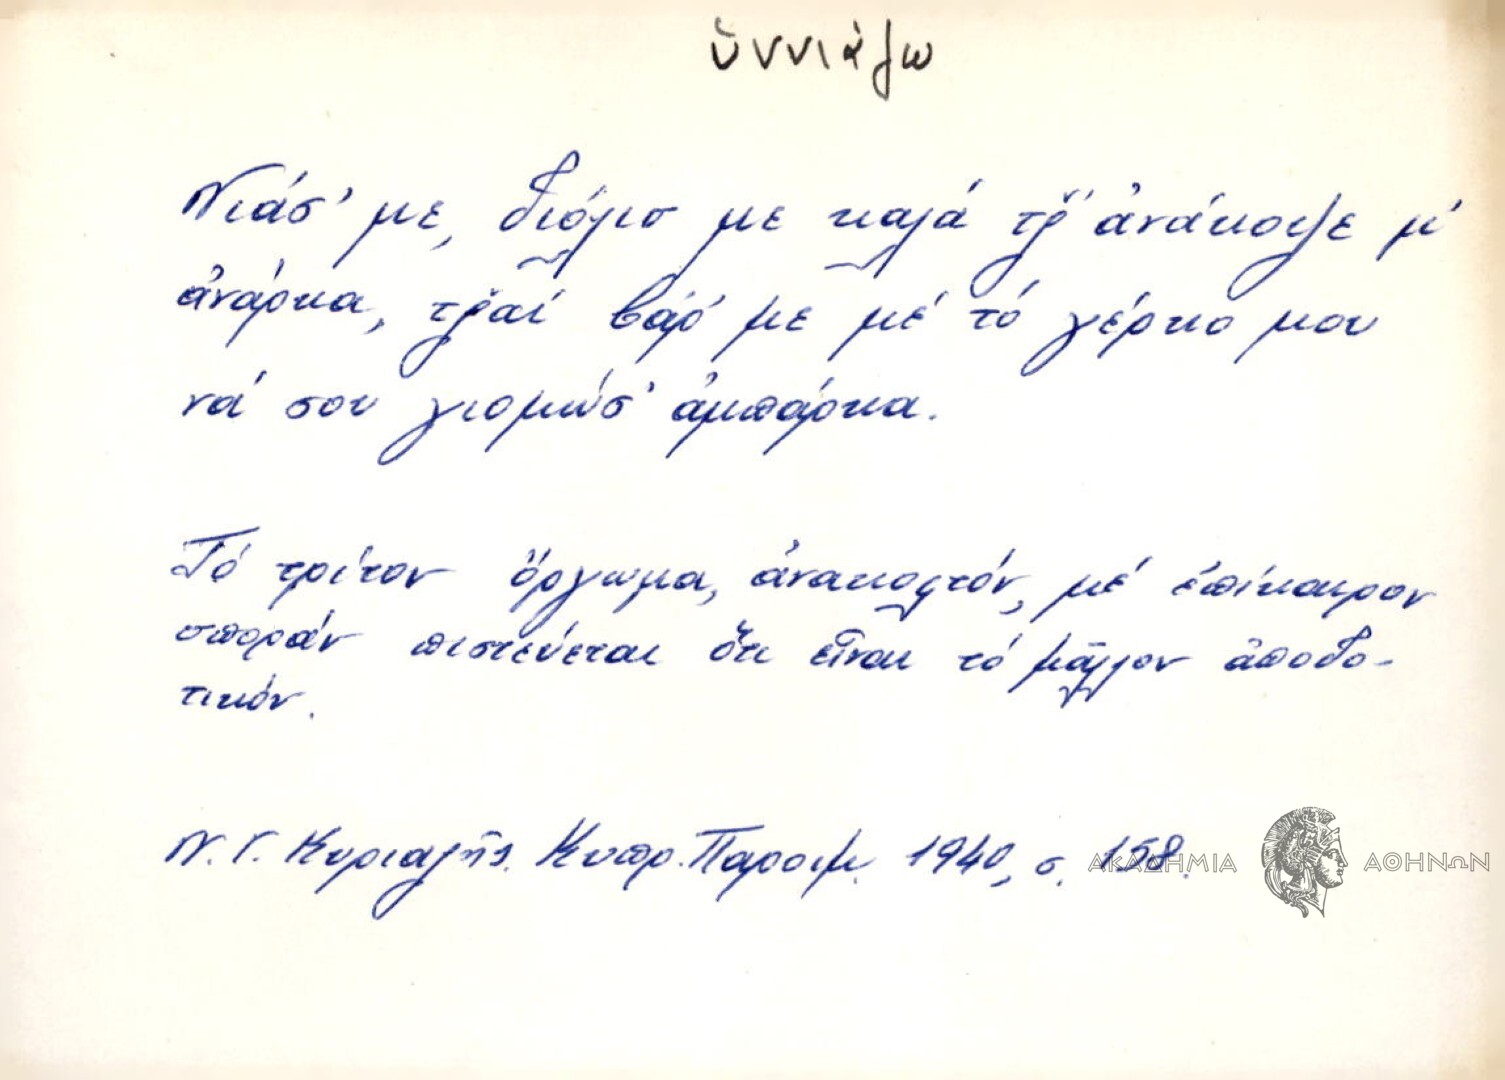 ὑννιάζω
Νιάσ' με, διόλισ με καλά τζ̌' ἀνάκοψε μ'
ἀνάρκα, τζ̌αί βάρ' με μέ τό γέρκο μου
νά σου γιομώσ' ἀμπάρκα.
Τό τρίτον ὄργωμα, ἀνακοφτόν, μέ ἐπίκαιρον
σποράν πιστεύεται ὅτι εἶναι τό μᾶλλον ἀποδο-
τικόν.
Ν. Γ. Κυριαζῆς. Κυπρ. Παροιμ. 1940, σ. 158.
ΑΚΑΔΗΜΙΑ ΑΘΗΝΩΝ